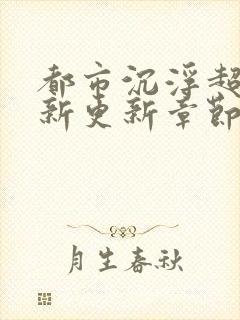 都市沉浮超
新更新章節
月生春秋